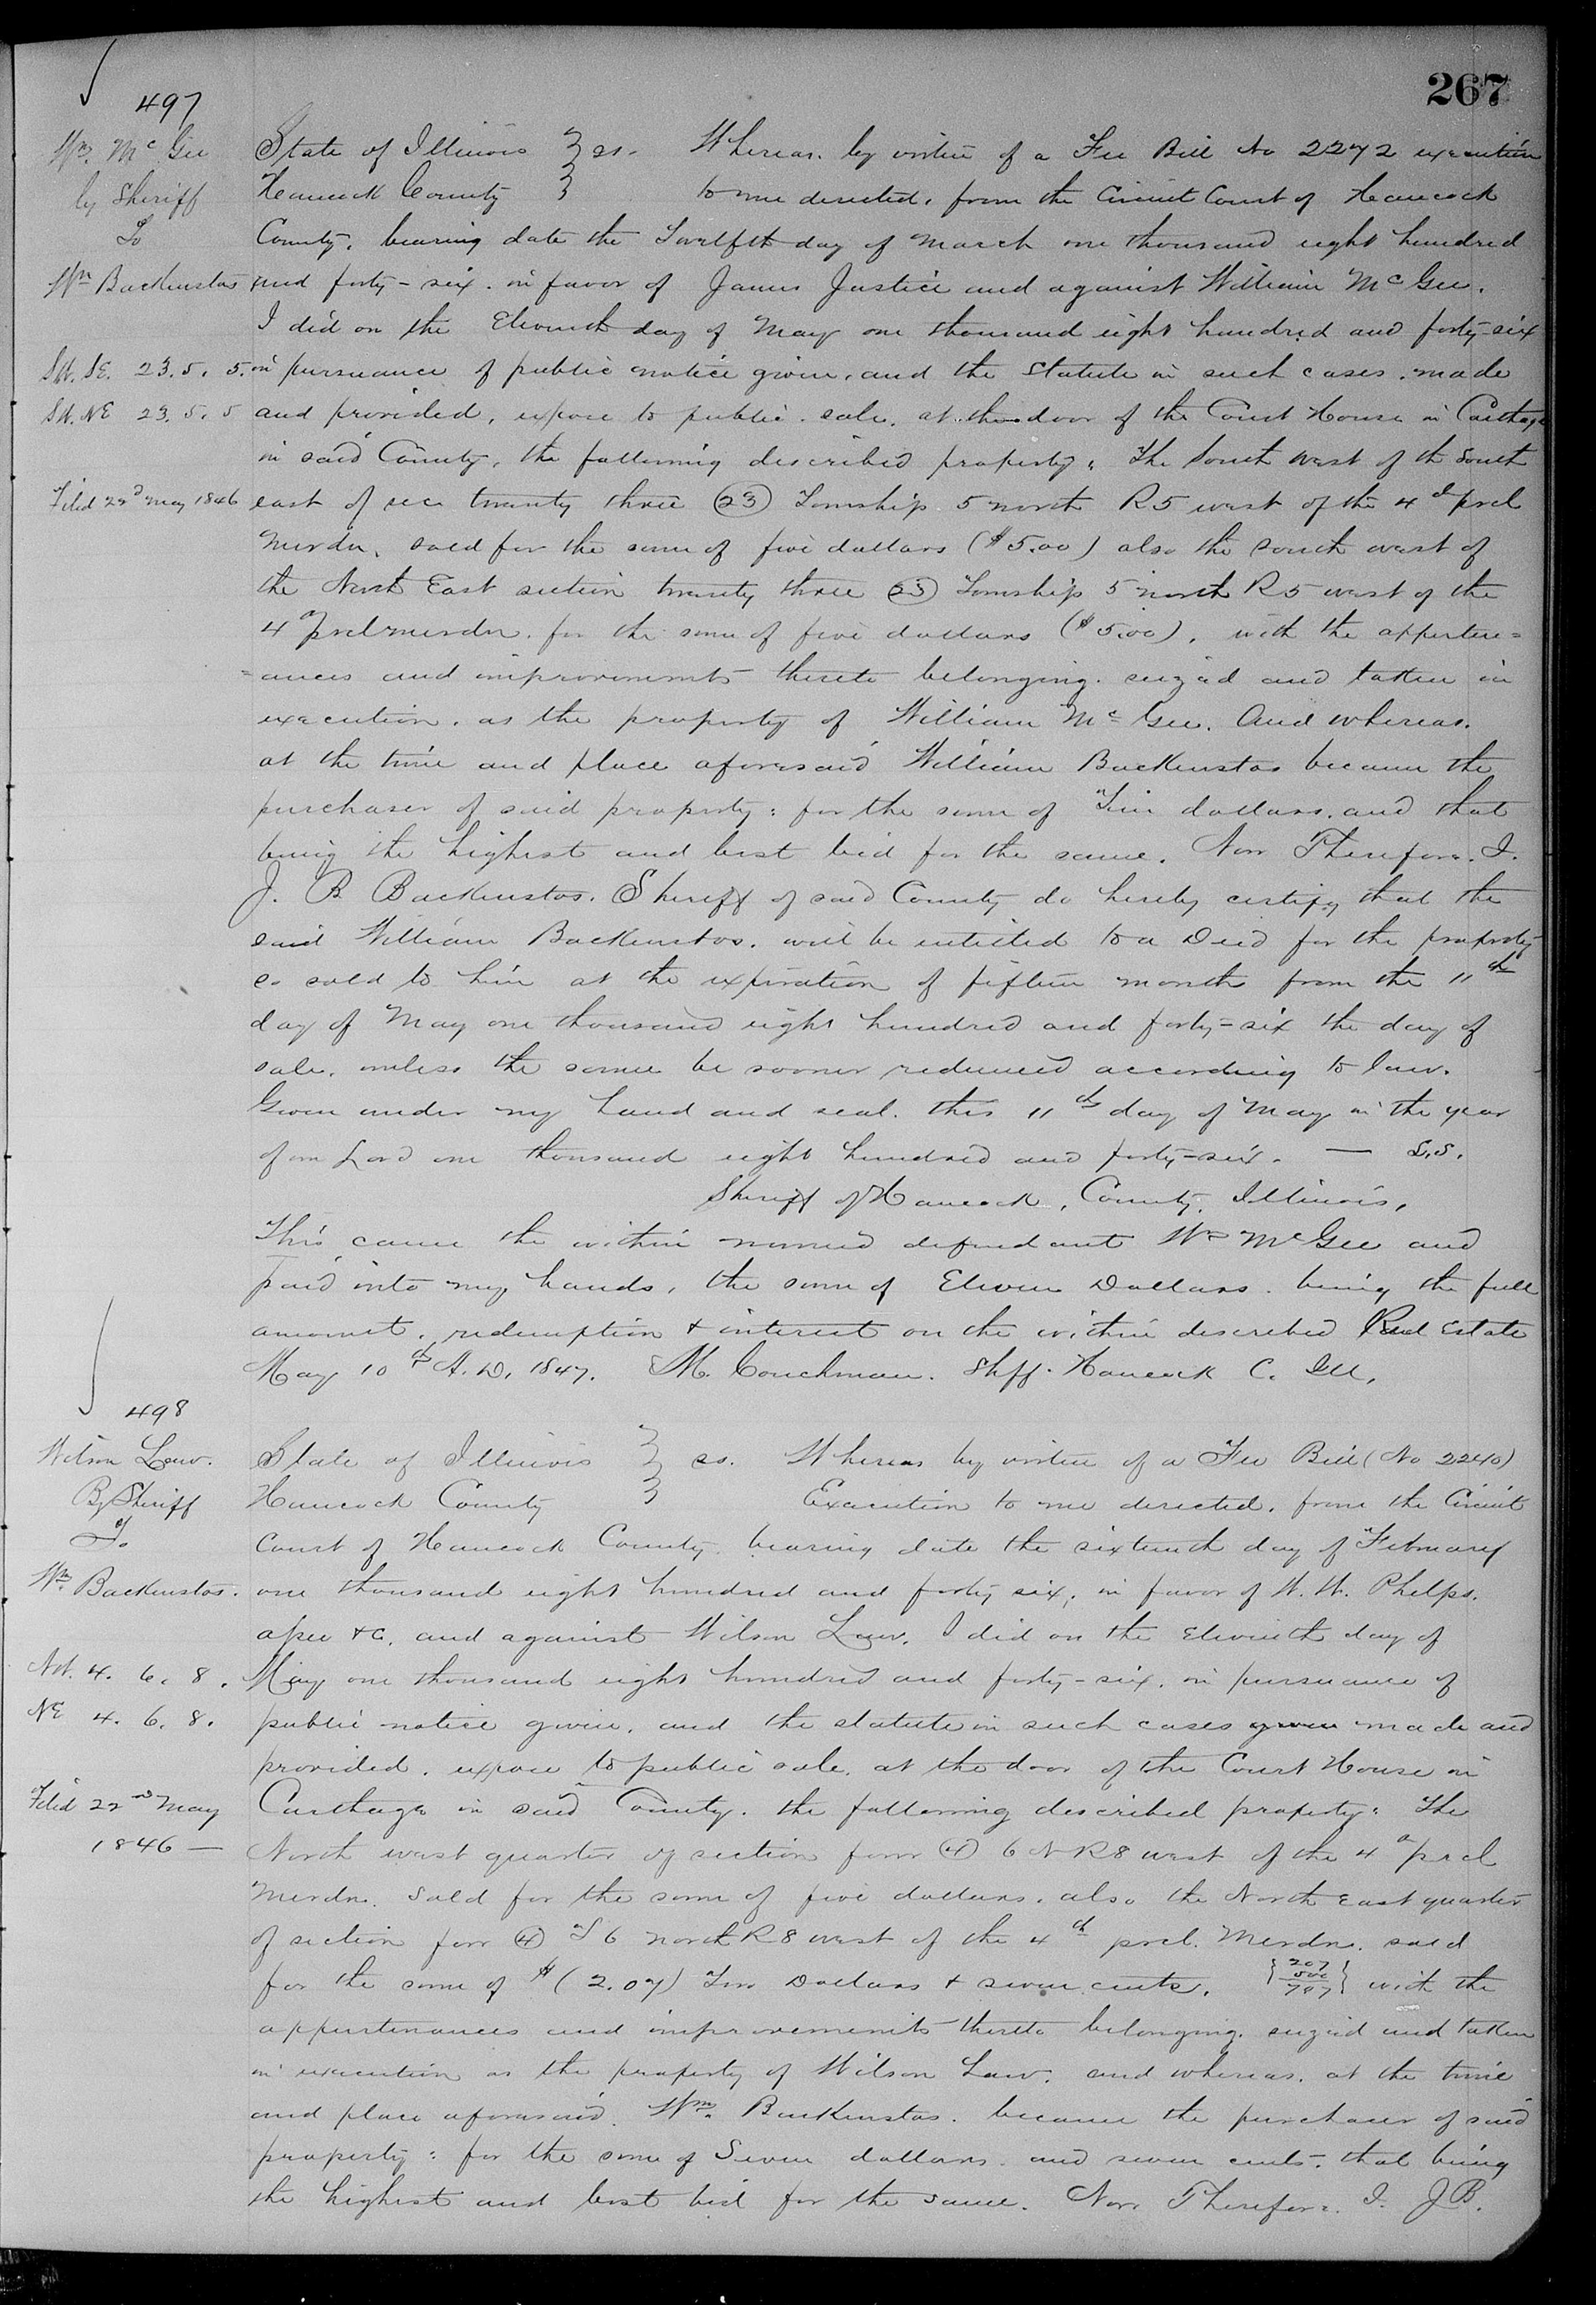 267
497
Wm. Mc Gee
by Sheriff
To
Wm Backenstos
SW. SE. 23. 5. 5.
SW. NE 23. 5. 5
Filed 22d May 1846
State of Illinois } ss. Whereas. by virtue of a Fee Bill No 2272 execution
Hancock County } to me directed, from the Circuit Court of Hancock
County, bearing date the Twelfth day of March one thousand eight hundred
and forty-six. in favor of James Justice and against William Mc Gee.
I did on the Eleventh day of May one thousand eight hundred and forty-six
in pursuance of public notice given, and the Statute in such cases. made
and provided, expose to public sale, at the door of the Court House in Carthage
in said County, the following described property: The South west of the South
east of sec twenty three (23) Township 5 north R5 west of the 4th prcl
Merdn. sold for the sum of five dollars ($5.00) also the South west of
the North East section twenty three (23) Township 5 north R5 west of the
4th prcl merdn. for the sum of five dollars ($5.00), with the apperten=
=ances and improvements thereto belonging. seized and taken in
execution. as the property of William Mc Gee. And whereas.
at the time and place aforesaid William Backenstos became the
purchaser of said property: for the sum of Ten dollars. and that
being the highest and best bid for the same. Now Therefore. I.
J. B Backenstos. Sheriff of said County do hereby certify that the
said William Backenstos. will be entitled to a Deed for the property
so sold to him at the expiration of fifteen months from the 11th
day of May one thousand eight hundred and forty-six the day of
sale. unless the same be sooner redeemed according to law.
Given under my hand and seal. this 11th day of May in the year
of our Lord one thousand eight hundred and forty-six. — L.S.
Sheriff of Hancock, County, Illinois,
This came the within named defendant Wm McGee and
paid into my hands, the sum of Eleven Dollars. being the full
amount. redemption + interest on the within described Real Estate
May 10th A.D. 1847. M. Couchman. Shff. Hancock C. Ill,
498
Wilson Law.
By Sheriff
To
Wm. Backenstos.
NW. 4. 6. 8.
NE 4. 6. 8.
Filed 22nd May
1846 —
State of Illinois } ss. Whereas by virtue of a Fee Bill (No 2240)
Hancock County } Execution to me directed, from the Circuit
Court of Hancock County. bearing date the sixteenth day of February
one thousand eight hundred and forty six, in favor of W. W. Phelps.
apee +c. and against Wilson Law. I did on the Eleventh day of
May one thousand eight hundred and forty-six. in pursuance of
public notice given. and the statute in such cases given made and
provided. expose to public sale. at the door of the Court House in
Carthage in said County. the following described property: The
North west quarter of section four (4) 6 N R8 west of the 4th prcl
Merdn. sold for the sum of five dollars. also the North East quarter
of section four (4) T 6 north R8 west of the 4th prcl. Merdn. sold
for the sum of $ (2.07) Two Dollars + seven cents. { 207 500 707 } with the
appurtenances and improvements thereto belonging. seized and taken
in execution as the property of Wilson Law. and whereas. at the time
and place aforesaid. Wm. Backenstos. became the purchaser of said
property: for the sum of Seven dollars. and seven cents. that being
the highest and best bid for the same. Now Therefore. I. J B.